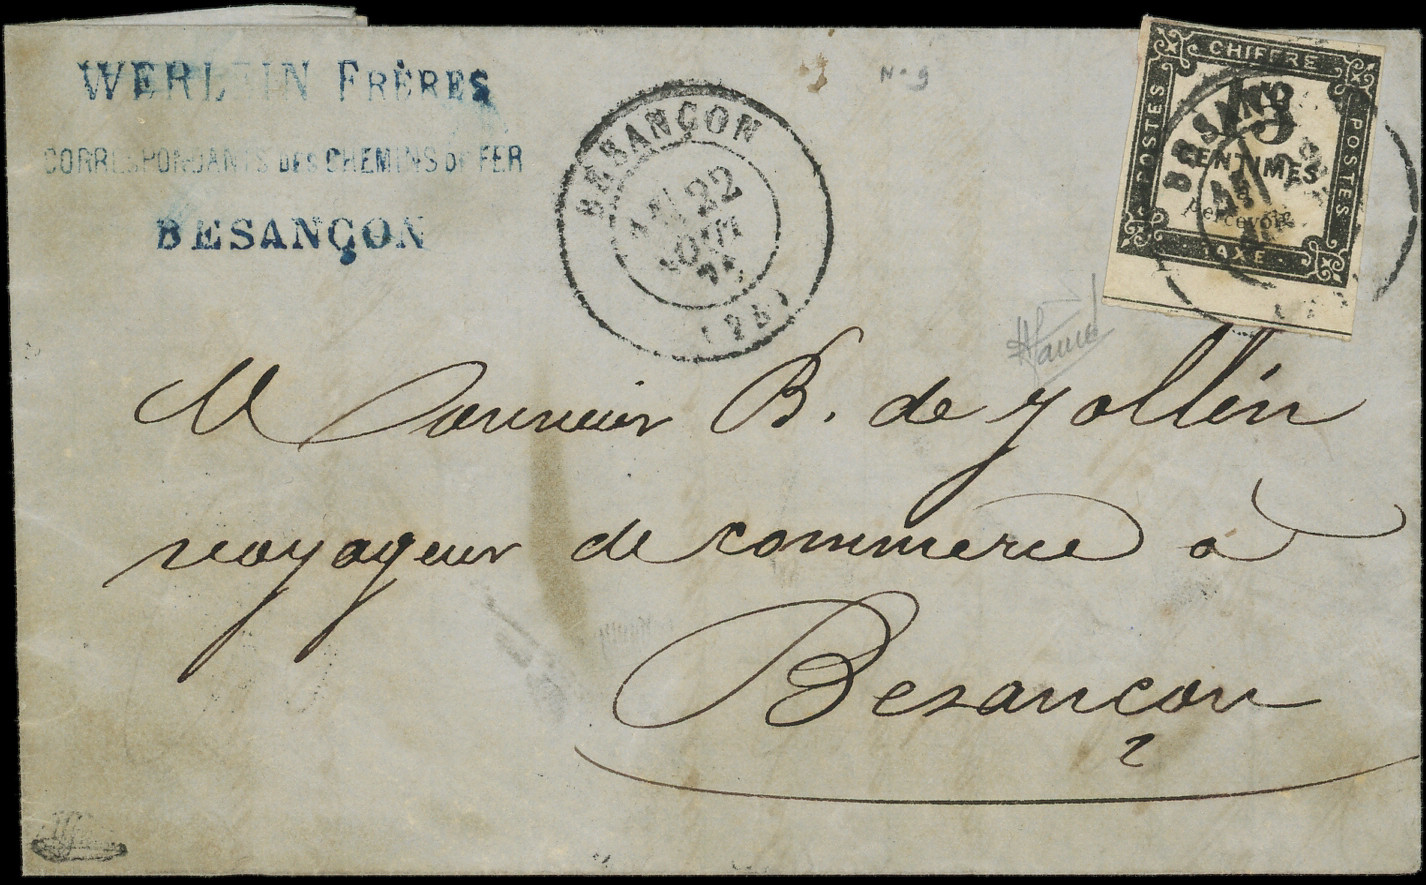 WERLEIN FRÈRES
CORRESPONDANTS DES CHEMINS DE FER
BESANÇON
BESANÇON
22
AOUT
(24)
N. 9
CHIFFRE
POSTES
15
CENTIMES
à percevoir
POSTES
TAXE
BESANÇON
Monsieur B. de Jollén
voyageur de commerce à
Besançon